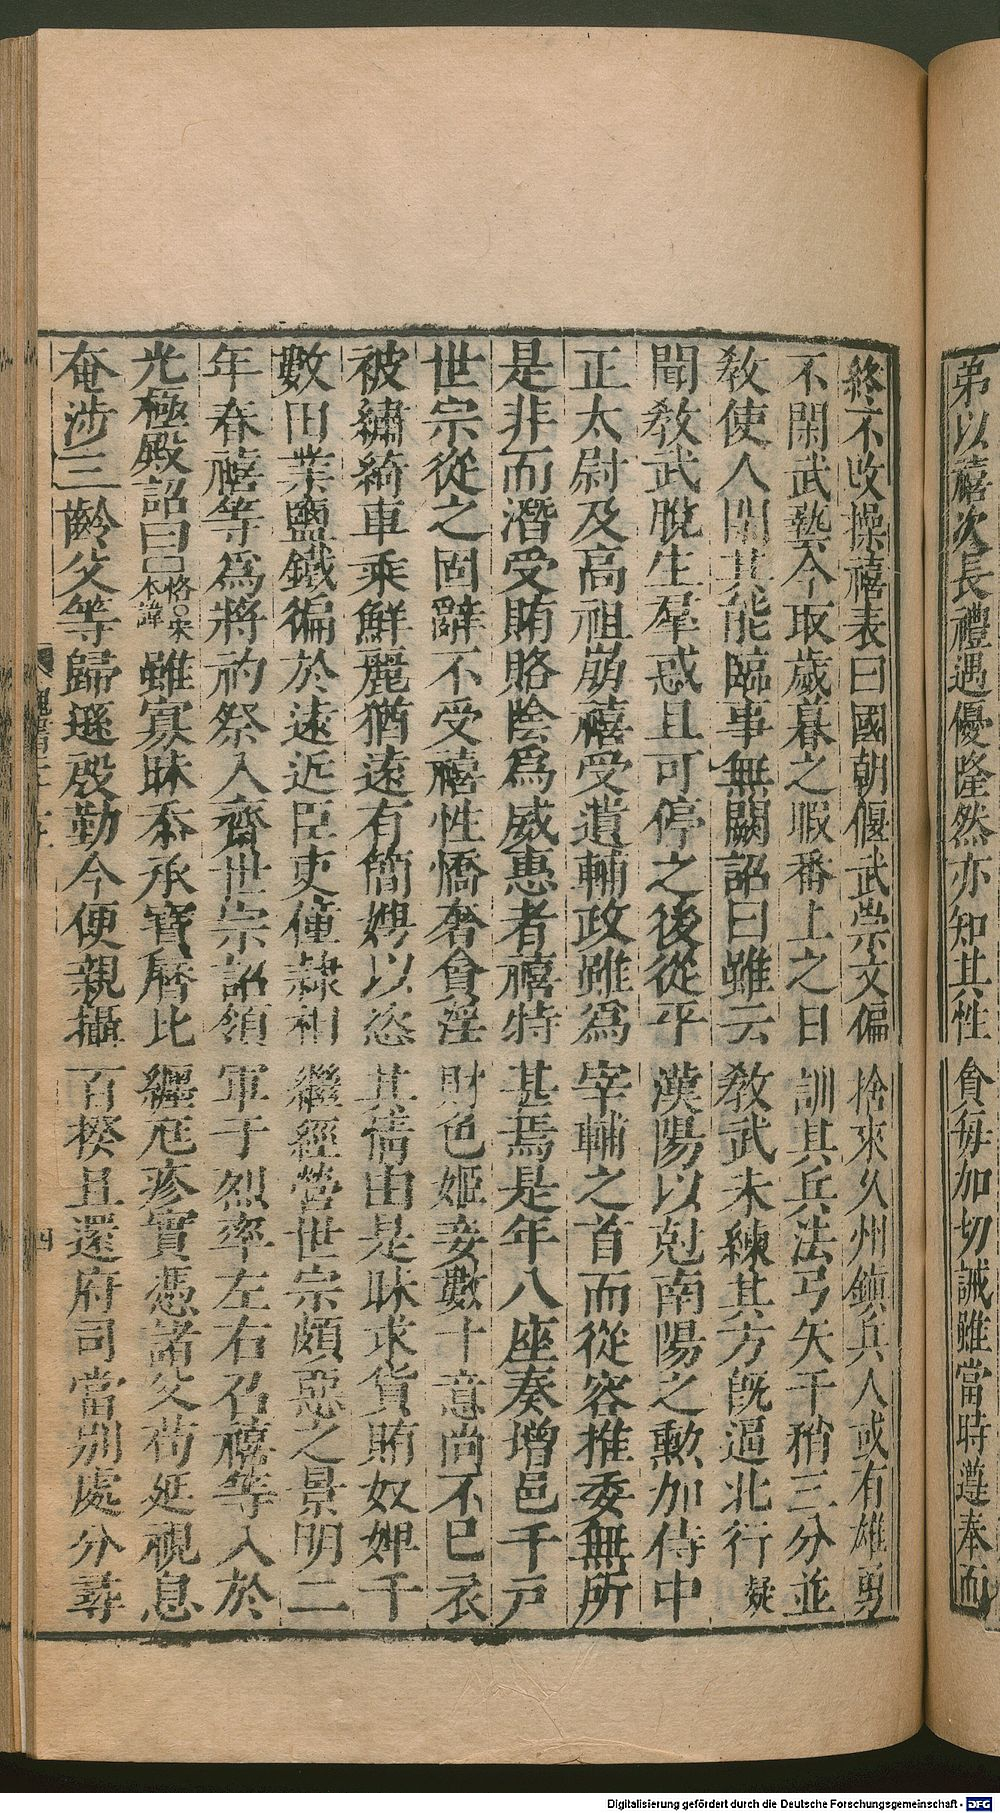 弟以禧次長禮遇優隆然亦知其性貪每加切誡雖當時遵奉而
終不改操禧表曰國朝偃武崇文偏捨來久州鎮兵人或有雄勇
不閑武藝今取歲暮之暇番上之日訓其兵法弓矢干矟三分並
敎使人閑其能臨事無闕詔曰雖云敎武未練其方旣逼北行疑
聞敎武脫生羣惑且可停之後從平漢陽以尅南陽之勲加侍中
正太尉及高祖崩禧受遺輔政雖爲宰輔之首而從容推委無所
是非而潛受賄賂陰爲威惠者禧特甚焉是年八座奏增邑千戸
世宗從之固辭不受禧性憍奢貪淫財色姬妾數十意尚不已衣
被繡綺車乘鮮麗猶遠有簡娉以恣其情由是昧求貨賄奴婢千
數田業鹽鐵徧於遠近臣吏僮隸相繼經營世宗頗惡之景明二
年春禧等爲將礿祭入齋世宗詔領軍于烈率左右召禧等入於
光極殿詔曰□格○宋本諱雖寡昧忝承寶曆比纒尫疹實憑諸父苟延視息
奄涉三齡父等歸遜殷勤今便親攝百揆且還府司當別處分尋
四
Digitalisierung gefördert durch die Deutsche Forschungsgemeinschaft - DFG